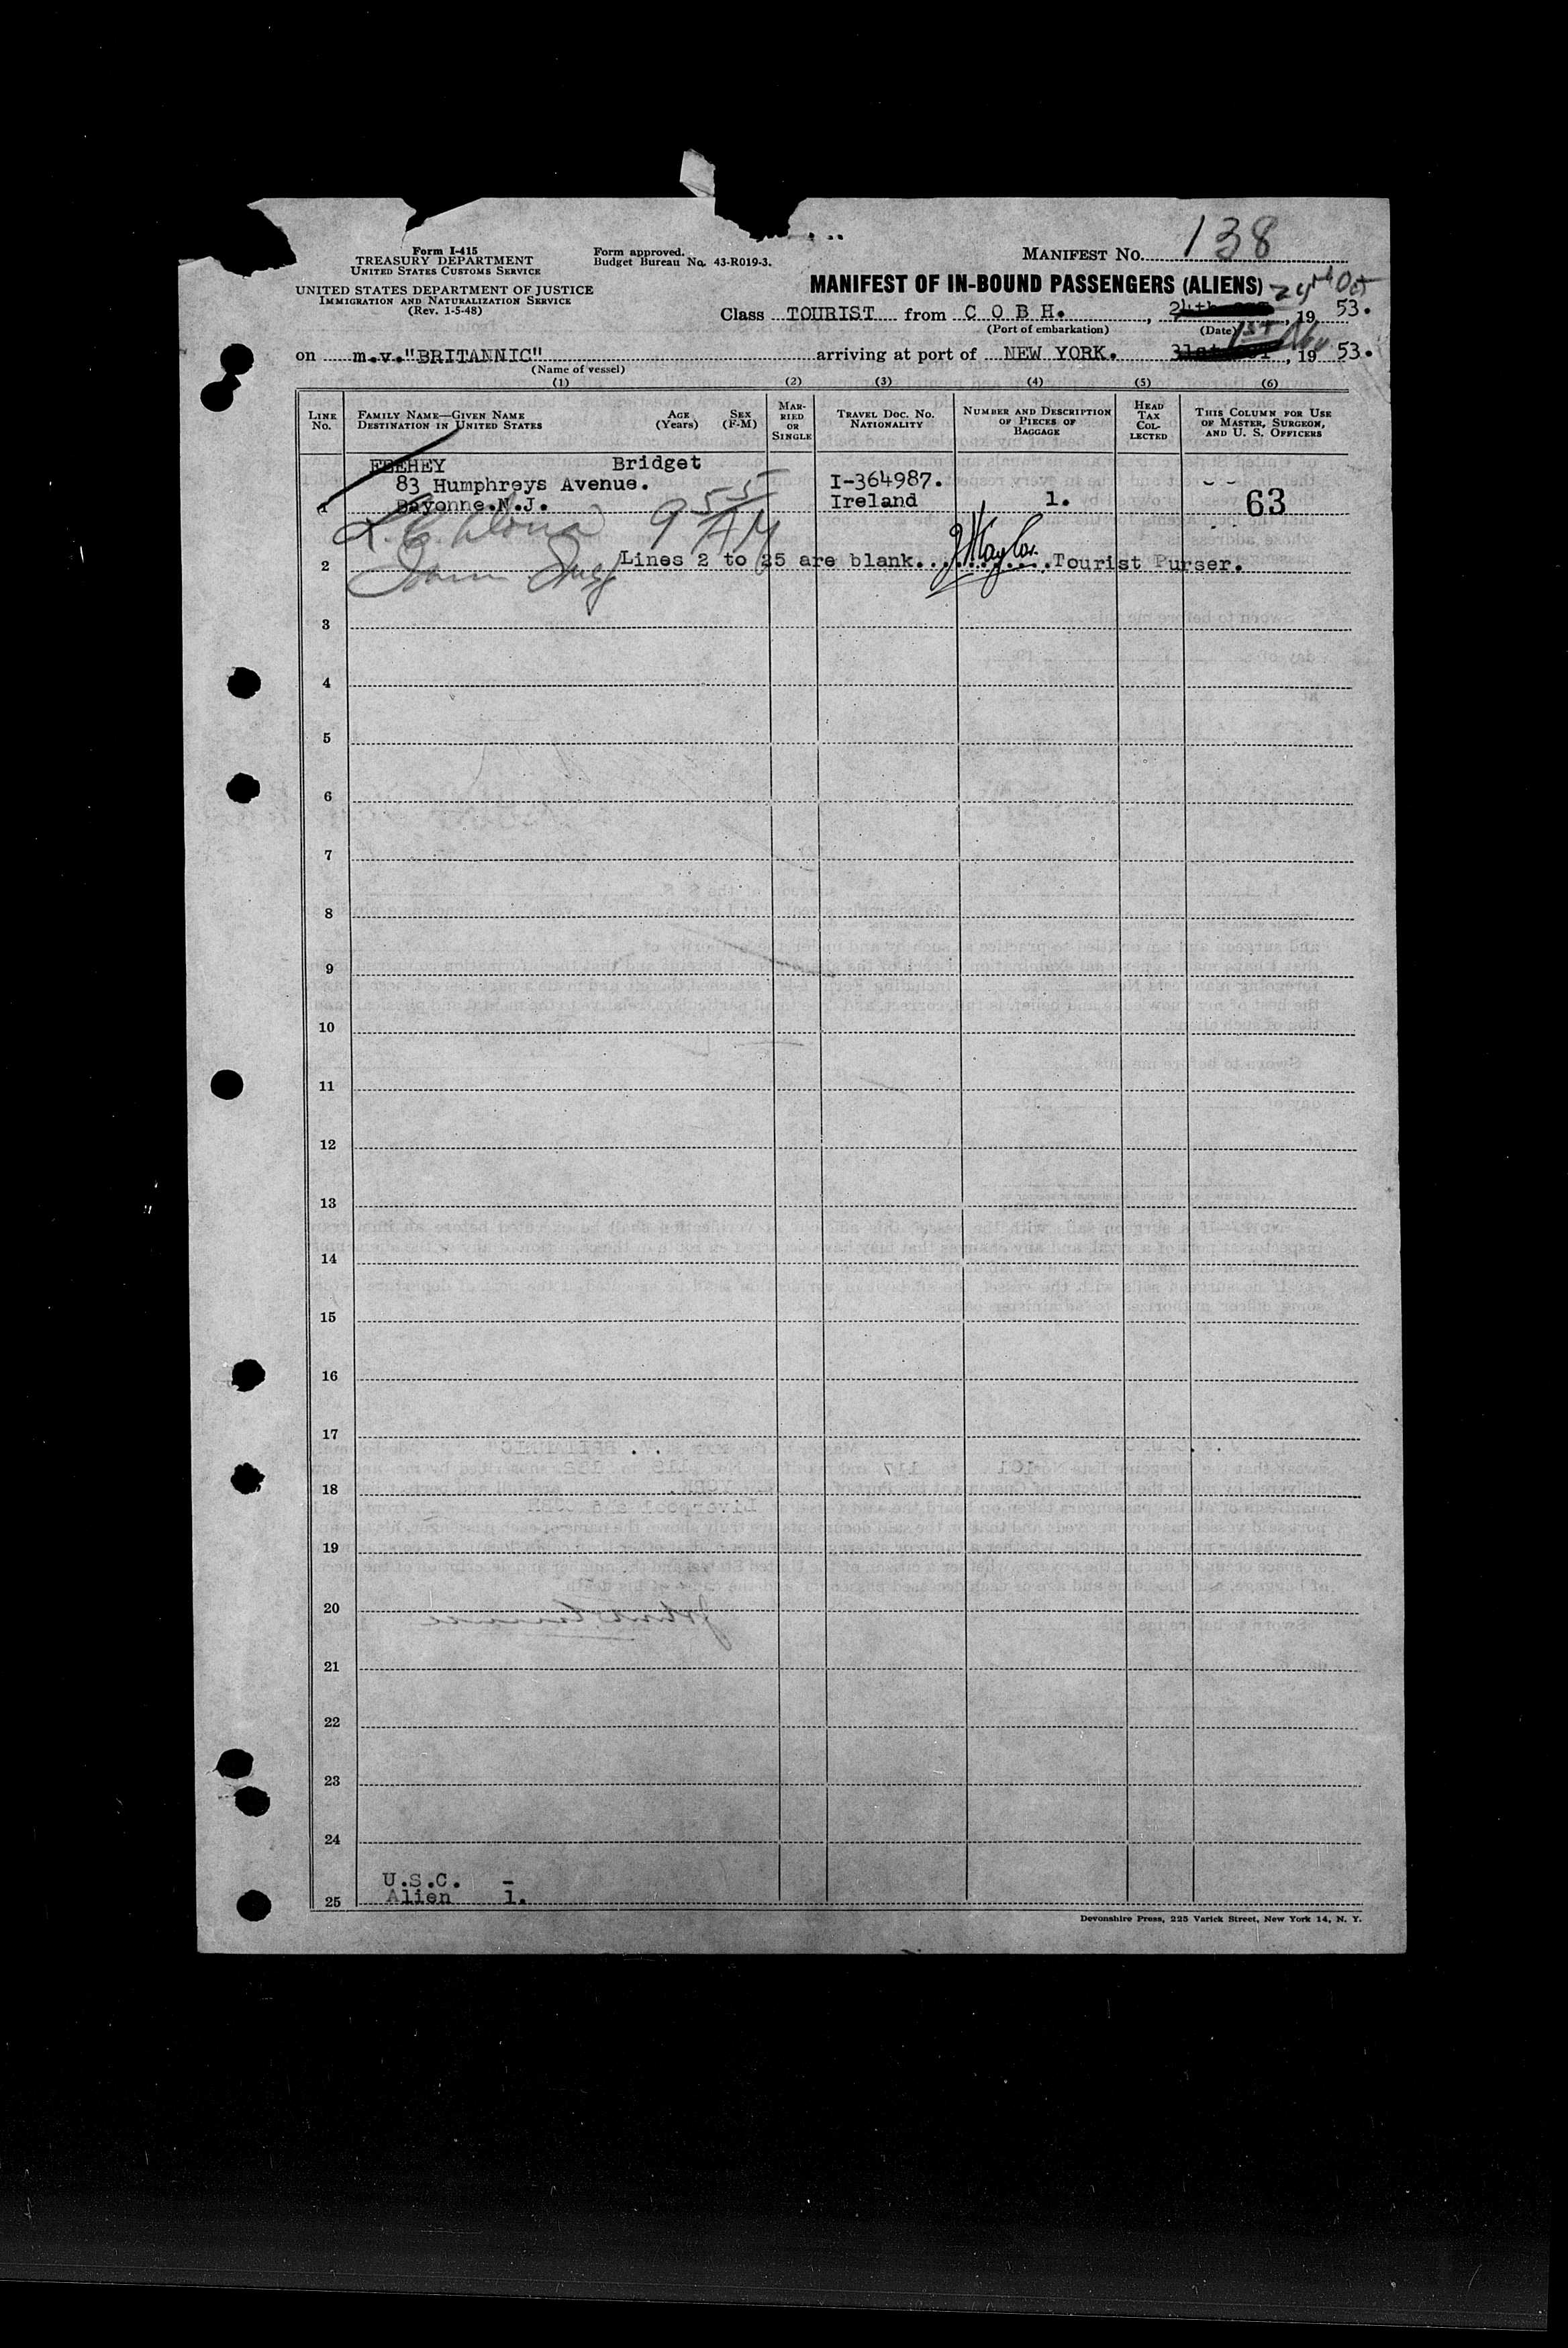 Form I-415
TREASURY DEPARTMENT
UNITED STATES CUSTOMS SERVICE
UNITED STATES DEPARTMENT OF JUSTICE
IMMIGRATION AND NATURALIZATION SERVICE
(Rev. 1-5-48)
Form approved.
Budget Bureau No. 43-R019-3.
MANIFEST No. 138
MANIFEST OF IN-BOUND PASSENGERS (ALIENS)
Class TOURIST from C O B H. , 24th , 19 53.
(Port of embarkation) (Date)
on m.v."BRITANNIC" arriving at port of NEW YORK. 1st Nov 31st , 19 53.
(Name of vessel)
(1) (2) (3) (4) (5) (6)
LINE No.
FAMILY NAME—GIVEN NAME
DESTINATION IN UNITED STATES
AGE (Years)
SEX (F-M)
MARRIED OR SINGLE
TRAVEL DOC. NO.
NATIONALITY
NUMBER AND DESCRIPTION OF PIECES OF BAGGAGE
HEAD TAX COLLECTED
THIS COLUMN FOR USE OF MASTER, SURGEON, AND U. S. OFFICERS
FEEHEY Bridget
83 Humphreys Avenue. I-364987.
1 Bayonne.N.J. Ireland 1. 63
9 55 AM
2 Lines 2 to 25 are blank. Tourist Purser.
3
4
5
6
7
8
9
10
11
12
13
14
15
16
17
18
19
20
21
22
23
24
U.S.C. -
25 Alien 1.
Devonshire Press, 225 Varick Street, New York 14, N. Y.